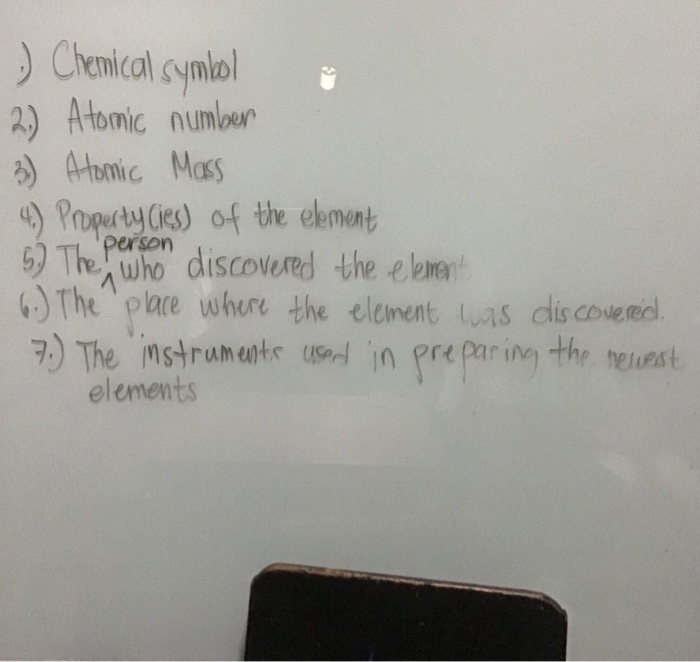 1.) Chemical symbol
2.) Atomic number
3.) Atomic Mass
4.) Property(ies) of the element
5.) The person who discovered the element
6.) The place where the element was discovered.
7.) The instruments used in preparing the newest
elements